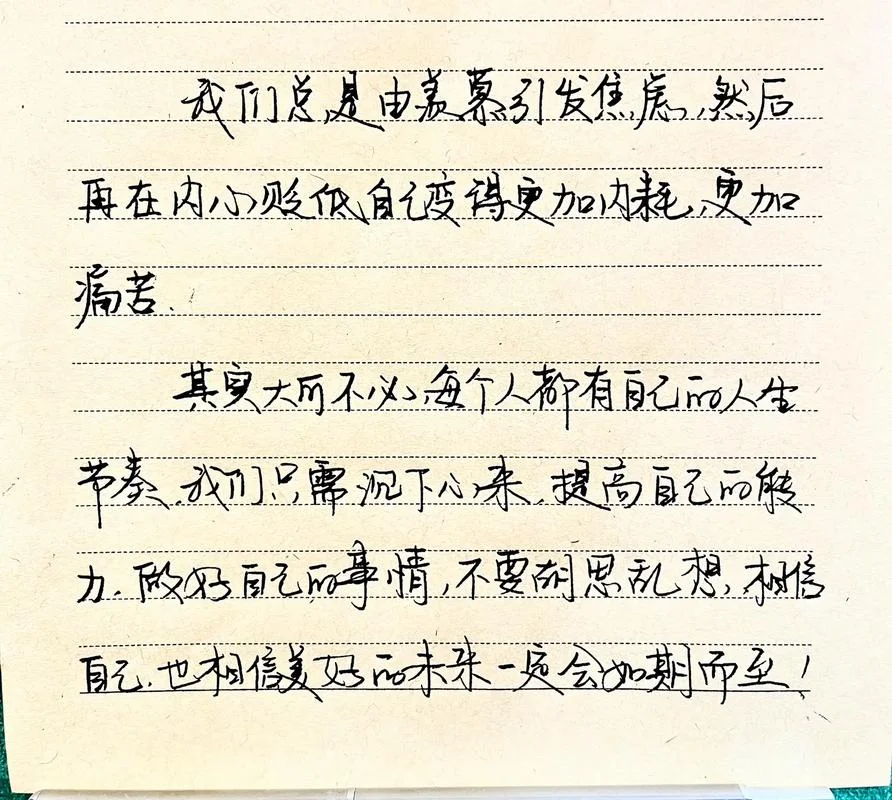 我们总是由羡慕引发焦虑,然后
再在内心贬低自己变得更加内耗,更加
痛苦.
其实大可不必,每个人都有自己的人生
节奏,我们只需沉下心来,提高自己的能
力.做好自己的事情,不要胡思乱想,相信
自己.也相信美好的未来一定会如期而至!